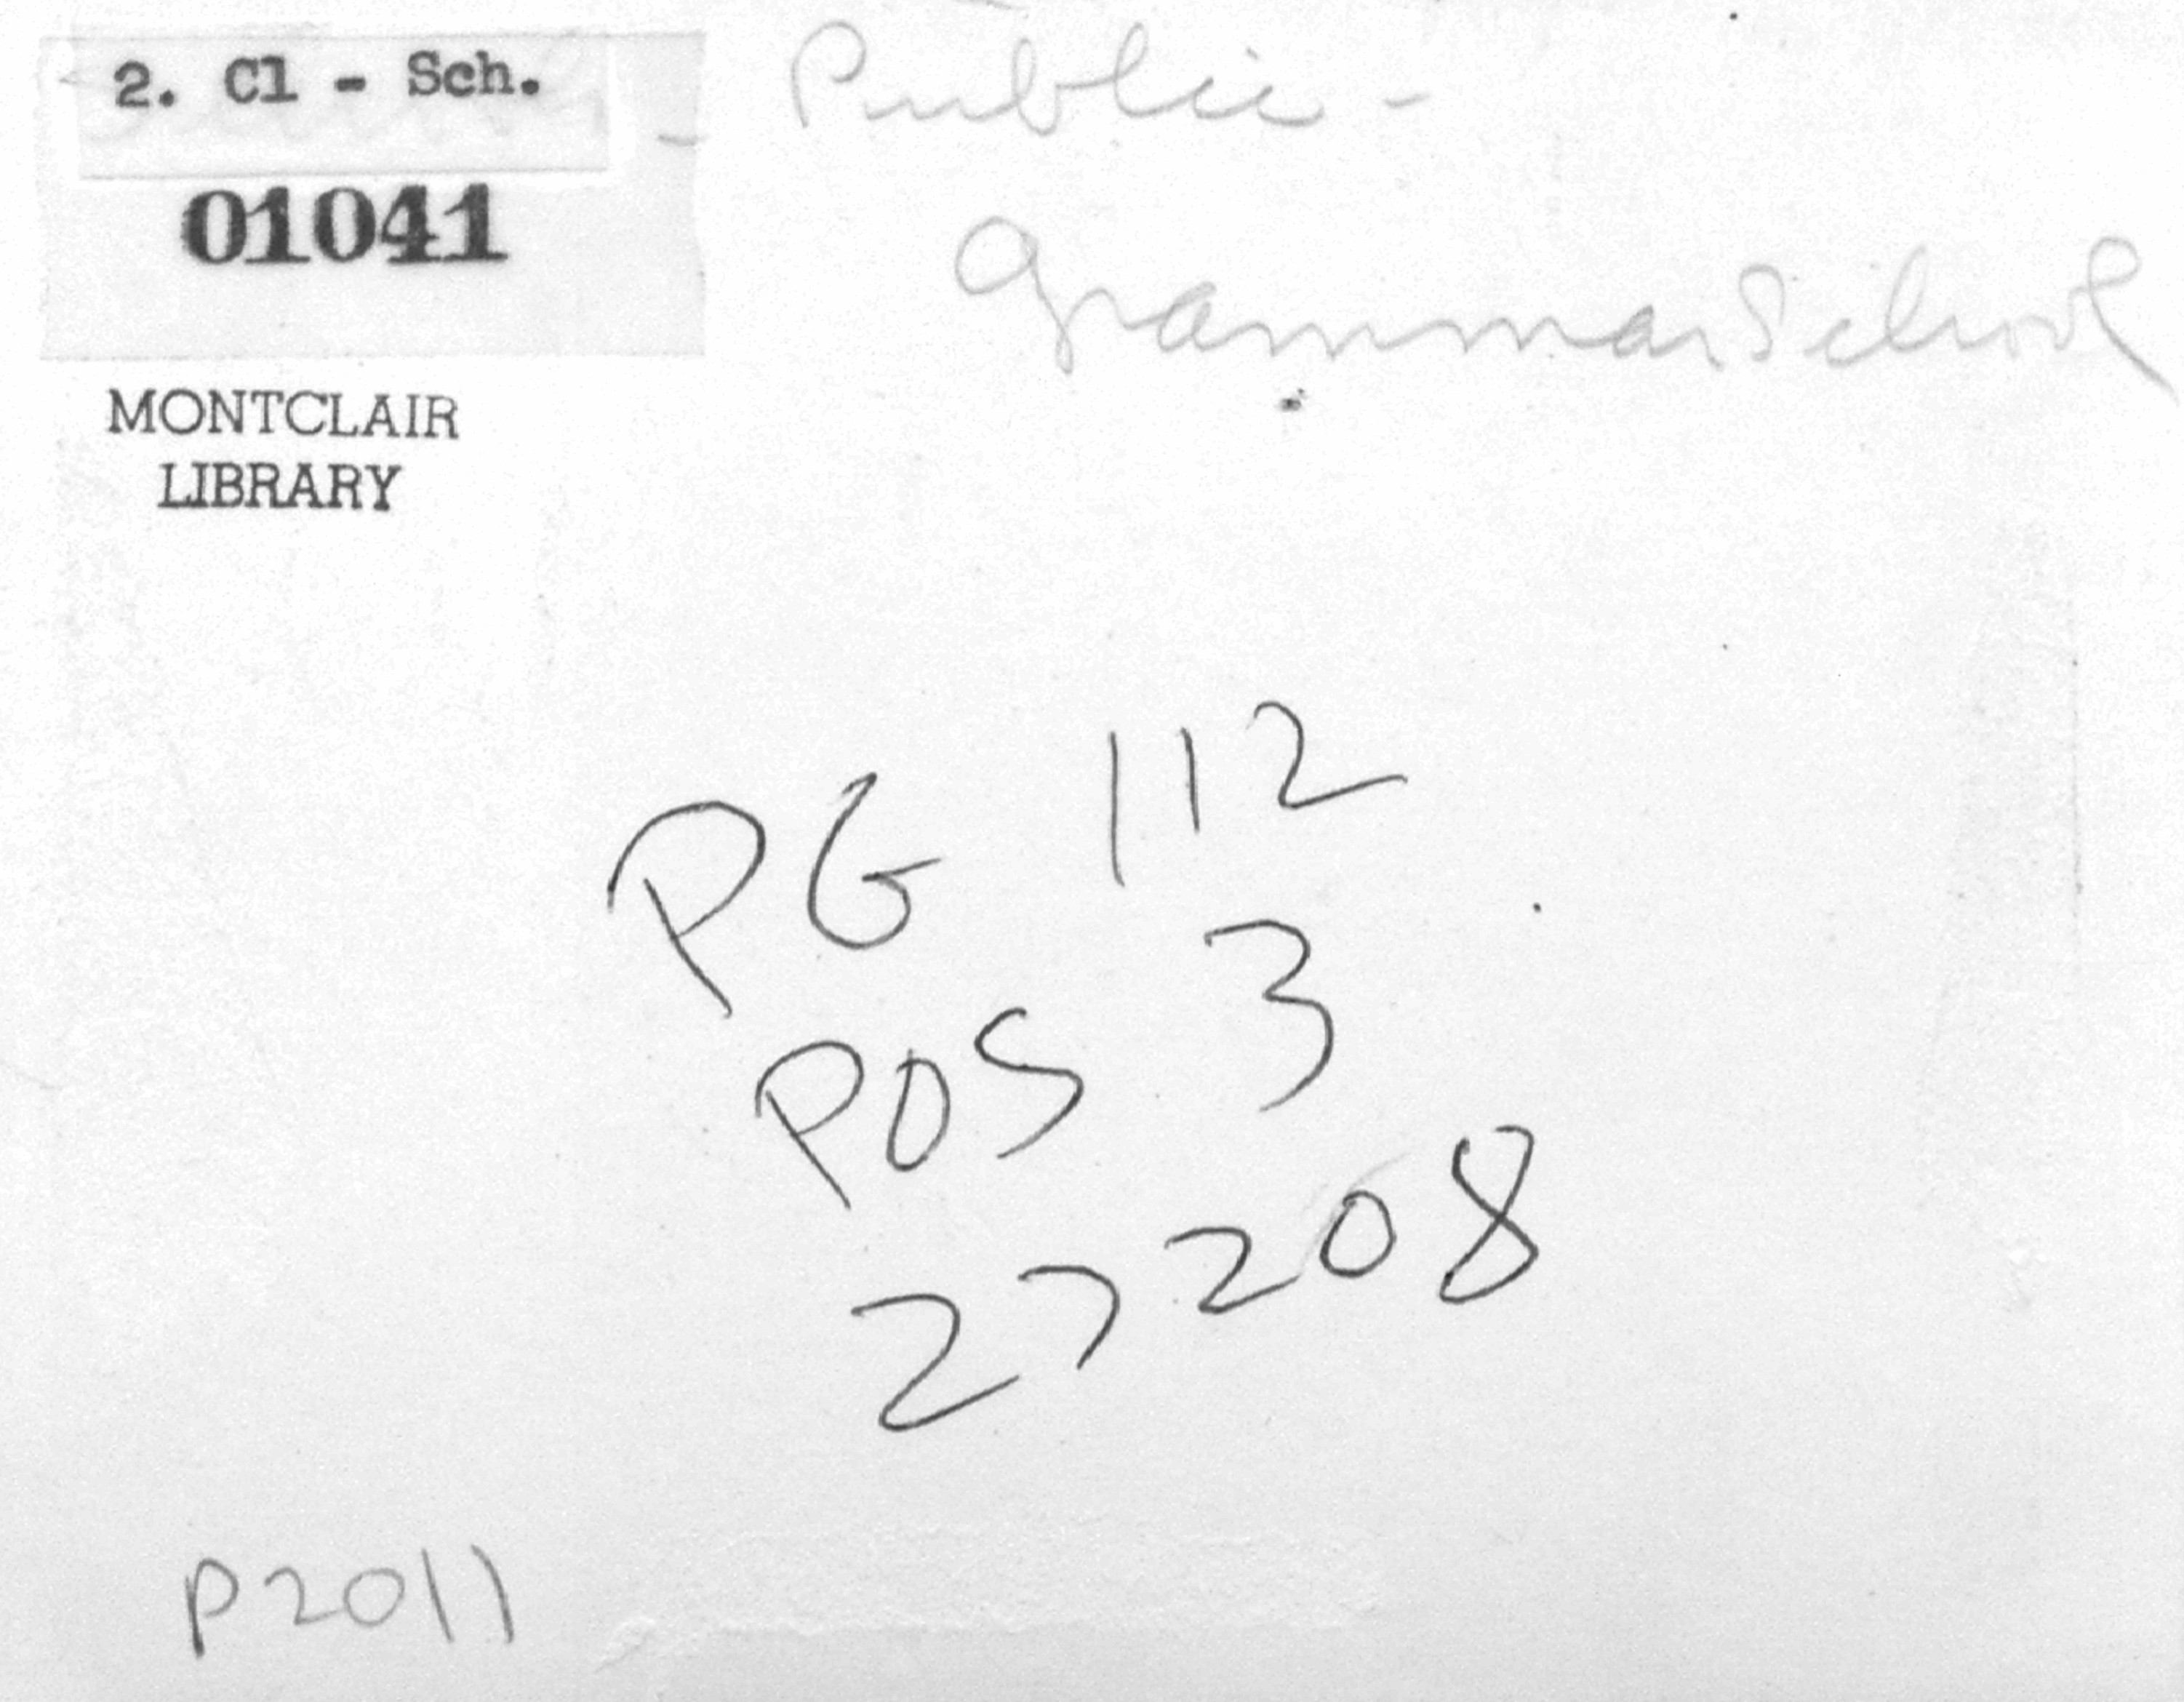 2. Cl - Sch.
- Public -
01041
Grammar School
MONTCLAIR
LIBRARY
PG 112
POS 3
27208
P2011